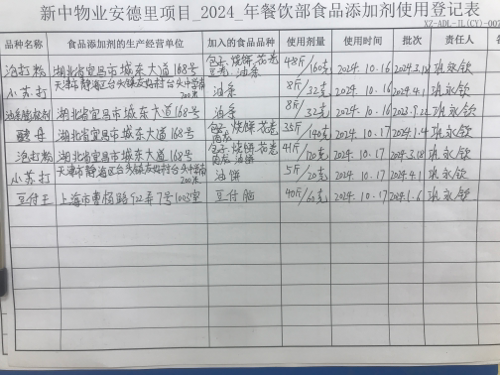 新中物业安德里项目 2024 年餐饮部食品添加剂使用登记表
XZ-ADL-JL(CY)-00
品种名称 食品添加剂的生产经营单位 加入的食品品种 使用剂量 使用时间 批次 责任人
泡打粉 湖北省宜昌市城东大道168号 包子 烧饼 花卷 油条 48斤/160克 2024.10.16 2024.3.18 永钦
小苏打 天津市静海区台头镇 油条 8斤/32克 2024.10.16 2024.4.1 永钦
湖北省宜昌市城东大道168号 油条 8斤/32克 2024.10.16 2023.9.22 永钦
酵母 湖北省宜昌市城东大道168号 包子 烧饼 花卷 35斤/140克 2024.10.17 2024.1.4 永钦
泡打粉 湖北省宜昌市城东大道168号 包子 烧饼 花卷 41斤/120克 2024.10.17 2024.3.18 永钦
小苏打 天津市静海区台头镇 油饼 5斤/20克 2024.10.17 2024.4.1 永钦
豆付王 上海市曹杨路 7号1003室 豆付脑 40斤/60克 2024.10.17 2024.1.6 永钦